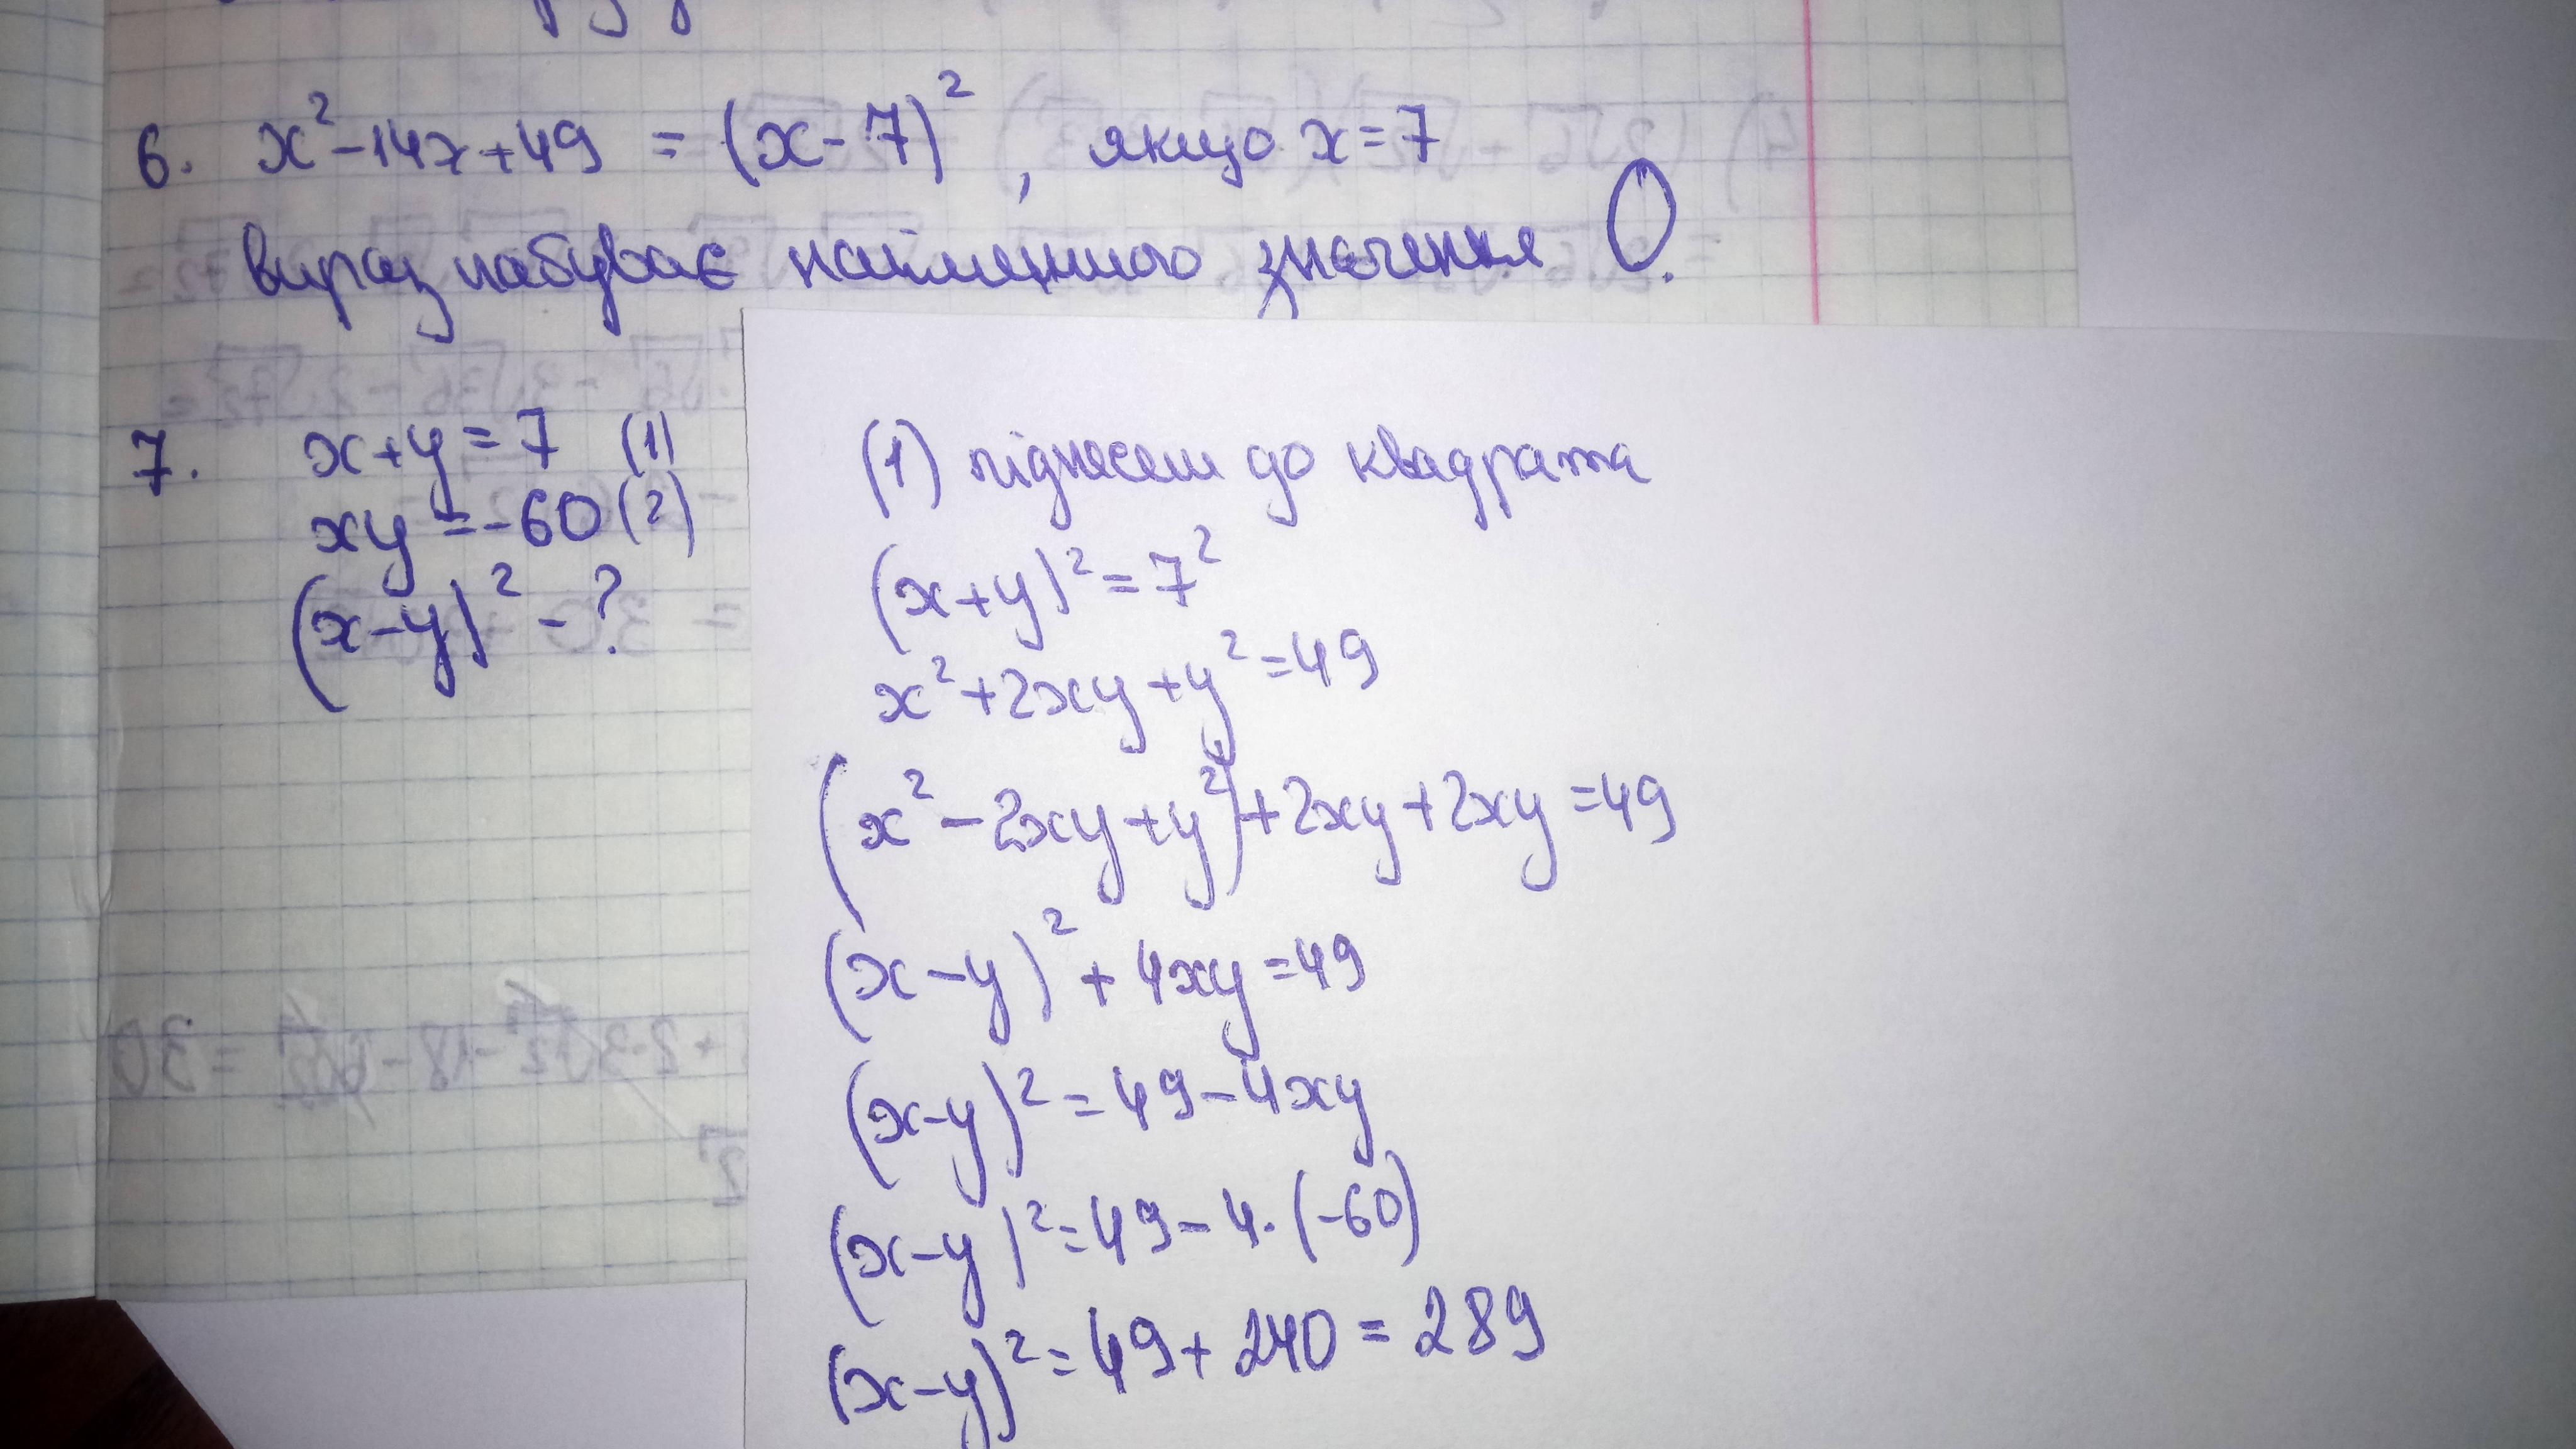 6. x² - 14x + 49 = (x - 7)², якщо x = 7
вираз набуває найменшого значення 0.
7. x + y = 7 (1)
xy = -60 (2)
(x - y)² - ?
(1) піднесем до квадрата
(x + y)² = 7²
x² + 2xy + y² = 49
(x² - 2xy + y²) + 2xy + 2xy = 49
(x - y)² + 4xy = 49
(x - y)² = 49 - 4xy
(x - y)² = 49 - 4 · (-60)
(x - y)² = 49 + 240 = 289